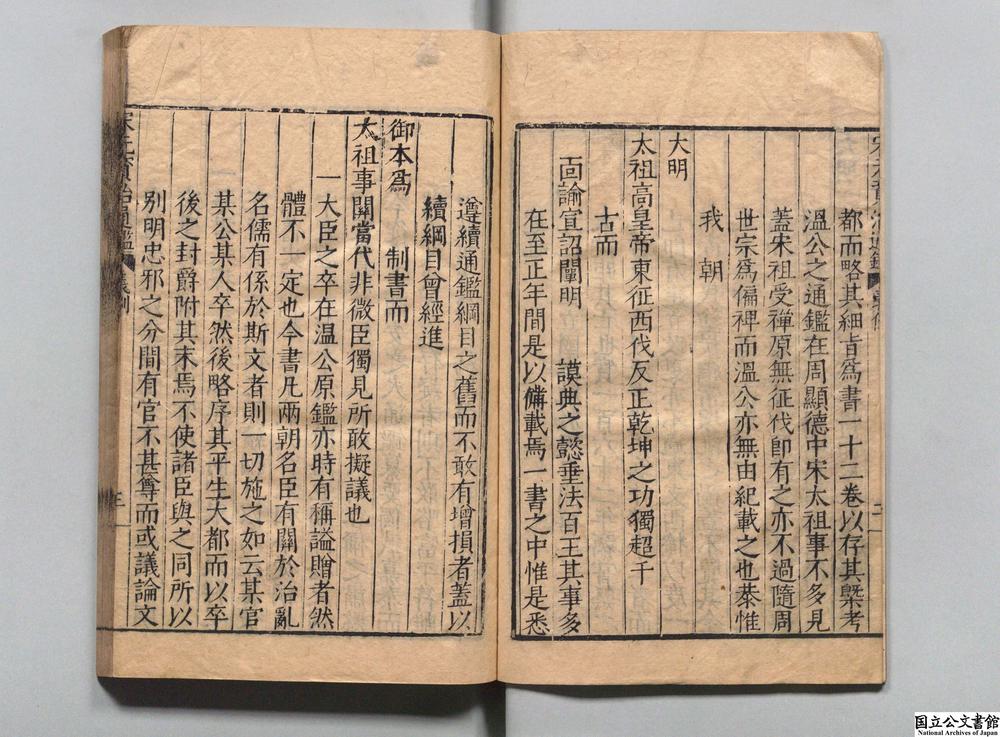 都而略其細㫖爲書一十二卷以存其槩考
溫公之通鑑在周顯德中宋太祖事不多見
蓋宋祖受禪原無征伐卽有之亦不過隨周
世宗爲偏裨而溫公亦無由紀載之也恭惟
我朝
大明
太祖高皇帝東征西伐反正乾坤之功獨超千
古而
靣諭宜詔闡明 謨典之懿垂法百王其事多
在至正年間是以備載焉一書之中惟是悉
遵續通鑑綱目之舊而不敢有增損者蓋以
續綱目曾經進
御本爲 制書而
太祖事關當代非微臣獨見所敢擬議也
一大臣之卒在溫公原鑑亦時有稱謚贈者然
體不一定也今書凡兩朝名臣有關於治亂
名儒有係於斯文者則一切施之如云某官
某公某人卒然後略序其平生大都而以卒
後之封爵附其末焉不使諸臣與之同所以
別明忠邪之分間有官不甚尊而或議論文
宋元資治通鑑 義例
國立公文書館
National Archives of Japan